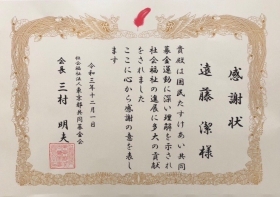 感謝状
遠藤潔様
貴殿は国民たすけあい共同
募金運動に深い理解を示され
社会福祉の進展に多大の貢献
をされました
ここに心から感謝の意を表し
ます
令和三年十二月一日
社会福祉法人東京都共同募金会
会長 三村明夫